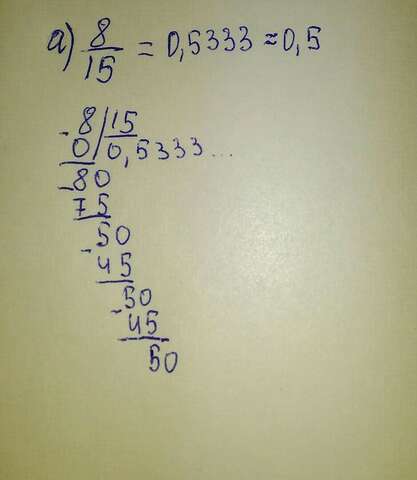 а) 8/15 = 0,5333 ≈ 0,5
- 8 | 15
0 | 0,5333...
- 80
75
- 50
45
- 50
45
50